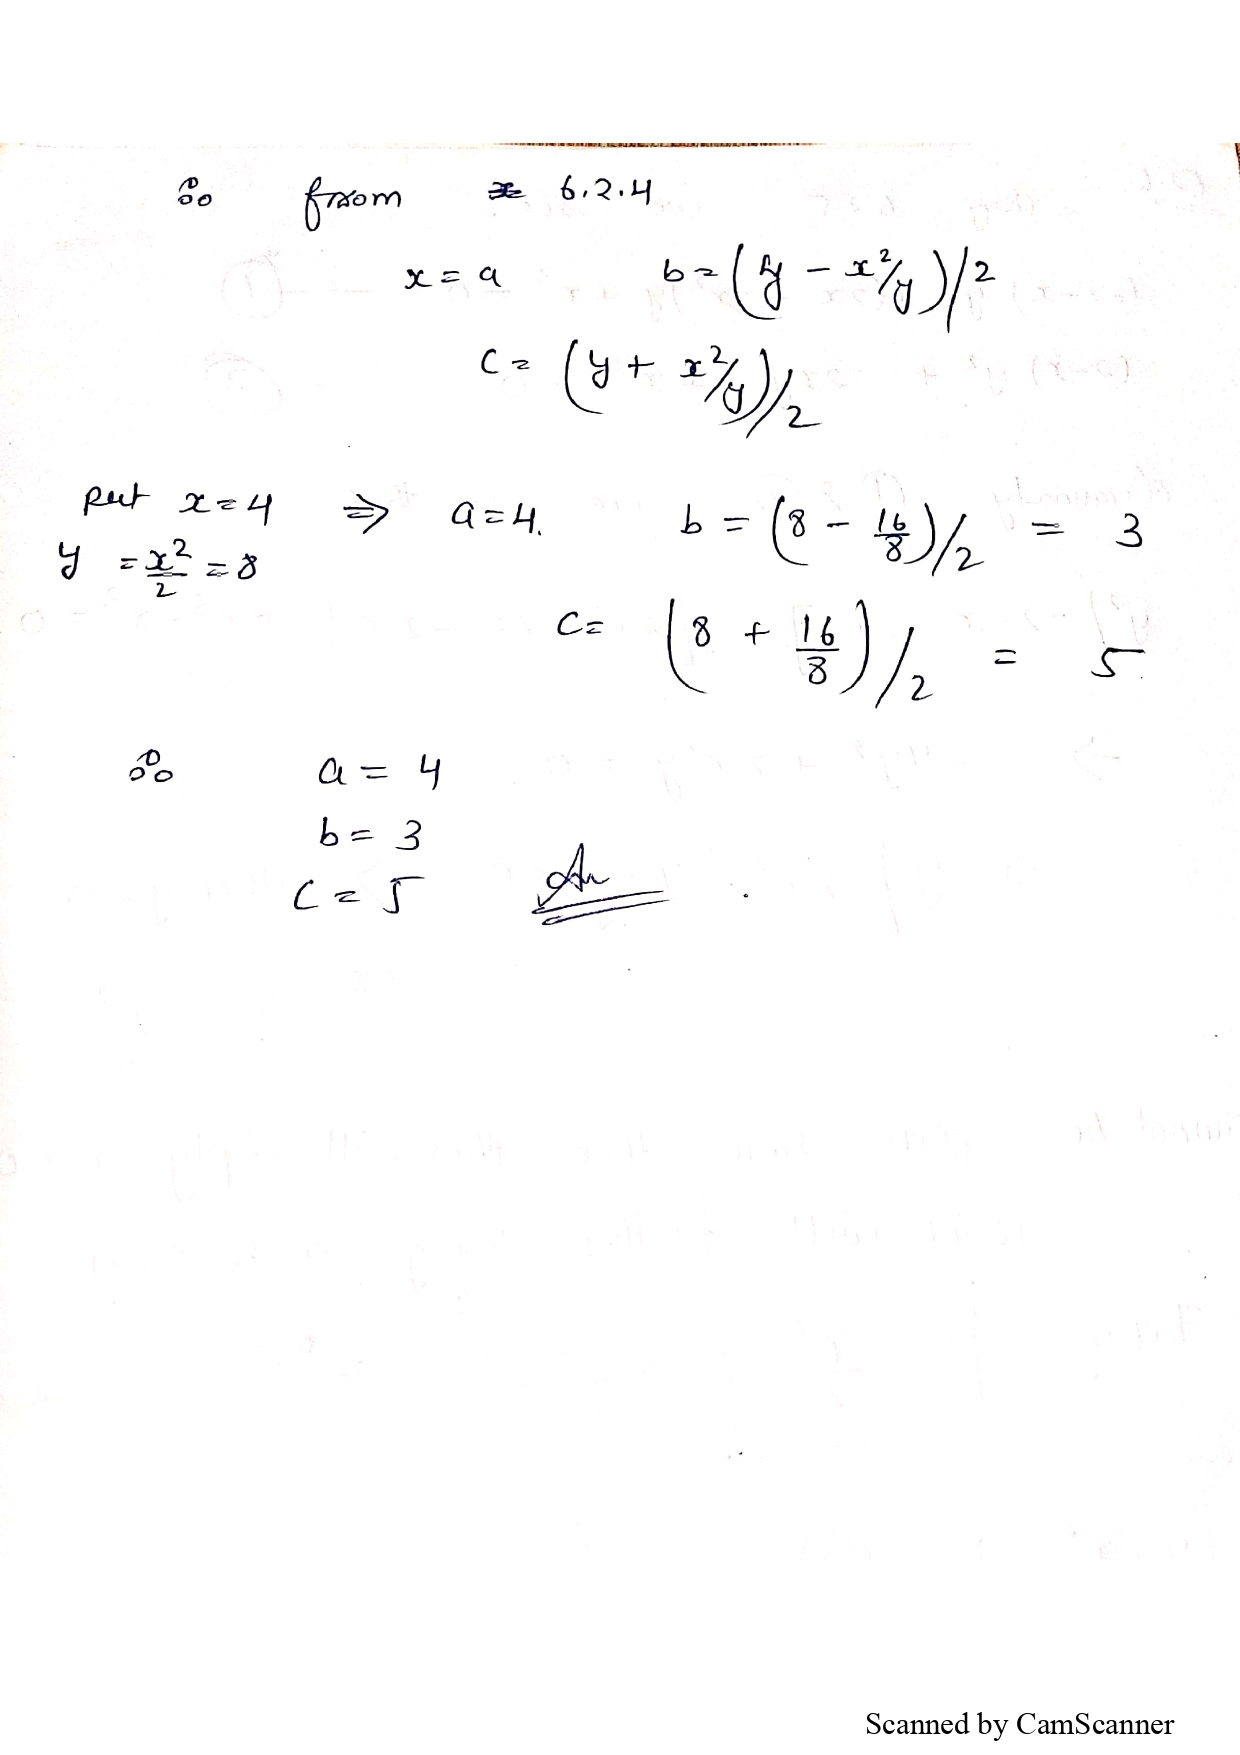 ∴ from 6.2.4
x = a b = (y - x²/y)/2
c = (y + x²/y)/2
put x = 4 ⇒ a = 4. b = (8 - 16/8)/2 = 3
y = x²/2 = 8
c = (8 + 16/8)/2 = 5
∴ a = 4
b = 3
c = 5 An
Scanned by CamScanner